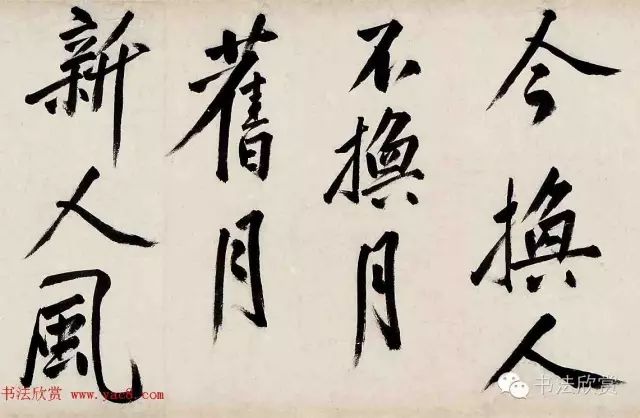 今換人
不換月
舊月
新人風
书法欣赏 www.yac8.com
书法欣赏